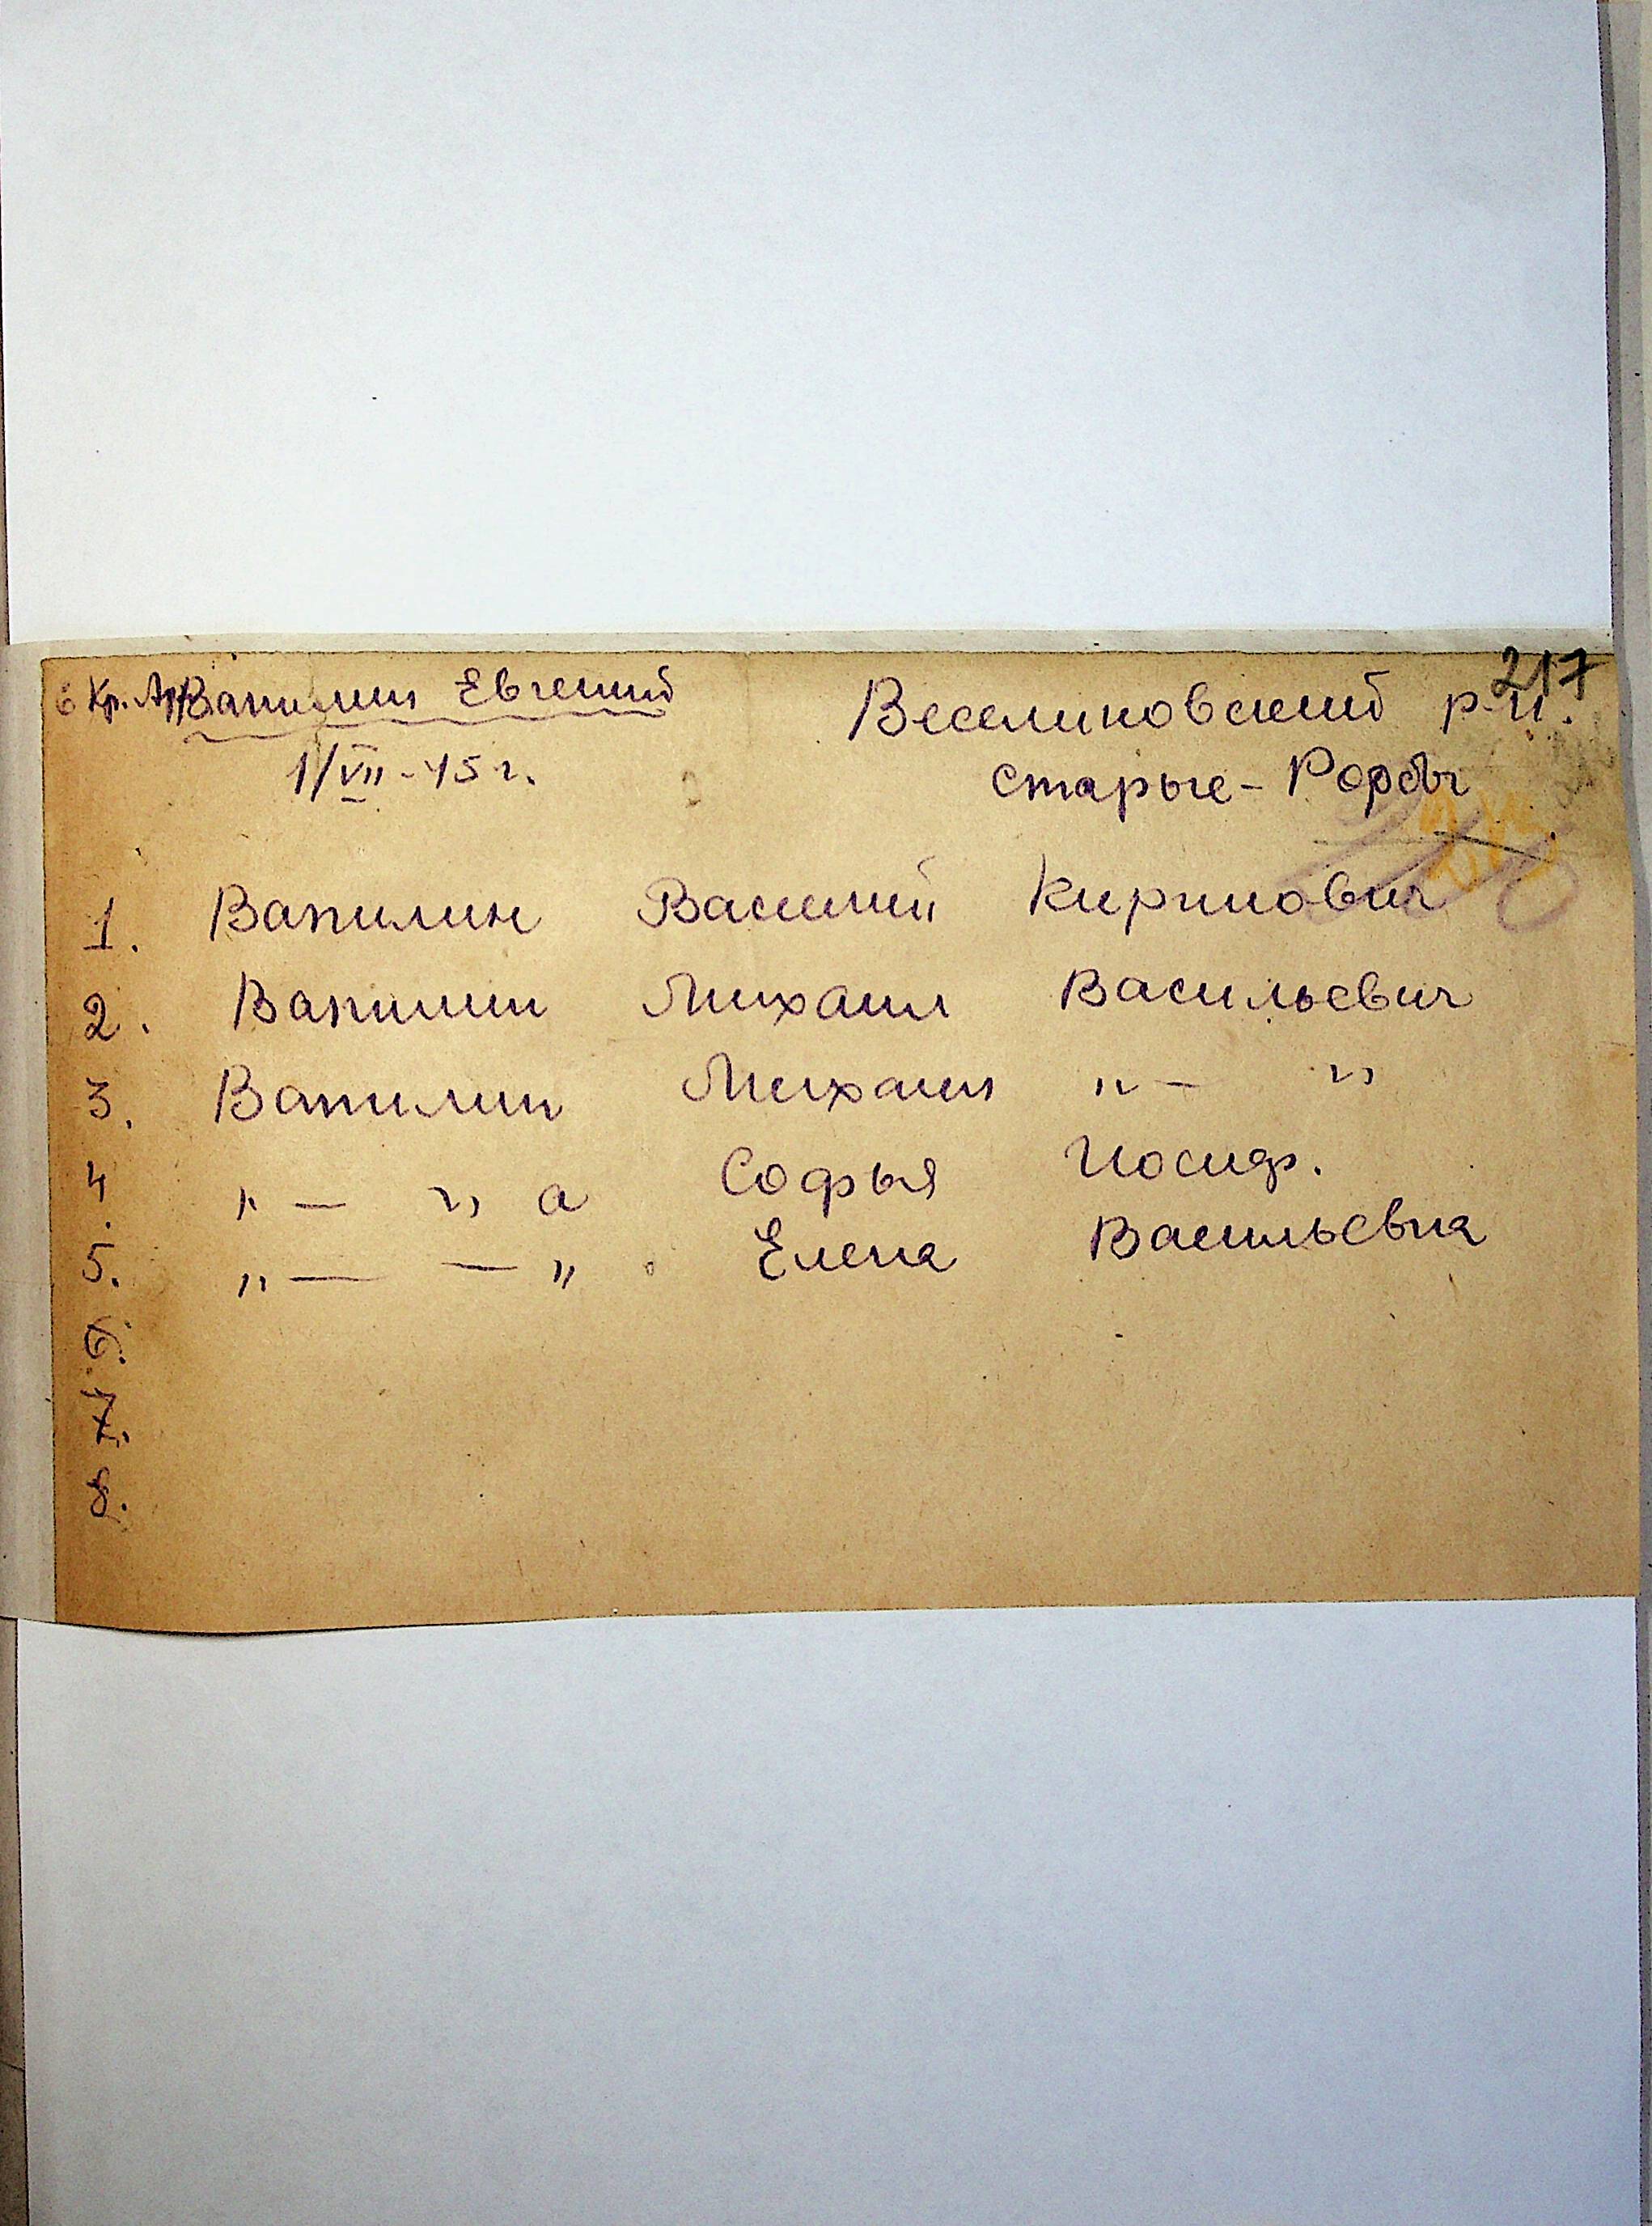 217
в Кр. Ар. Вапилин Евгений
1/VII-45 г.
Веселиновский р-н.
старые-Рорбы
1. Вапилин Василий Кириллович
2. Вапилин Михаил Васильевич
3. Вапилин Михаил „ — „
4. „ — „ а Софья Иосиф.
5. „ — — „ Елена Васильевна
6.
7.
8.